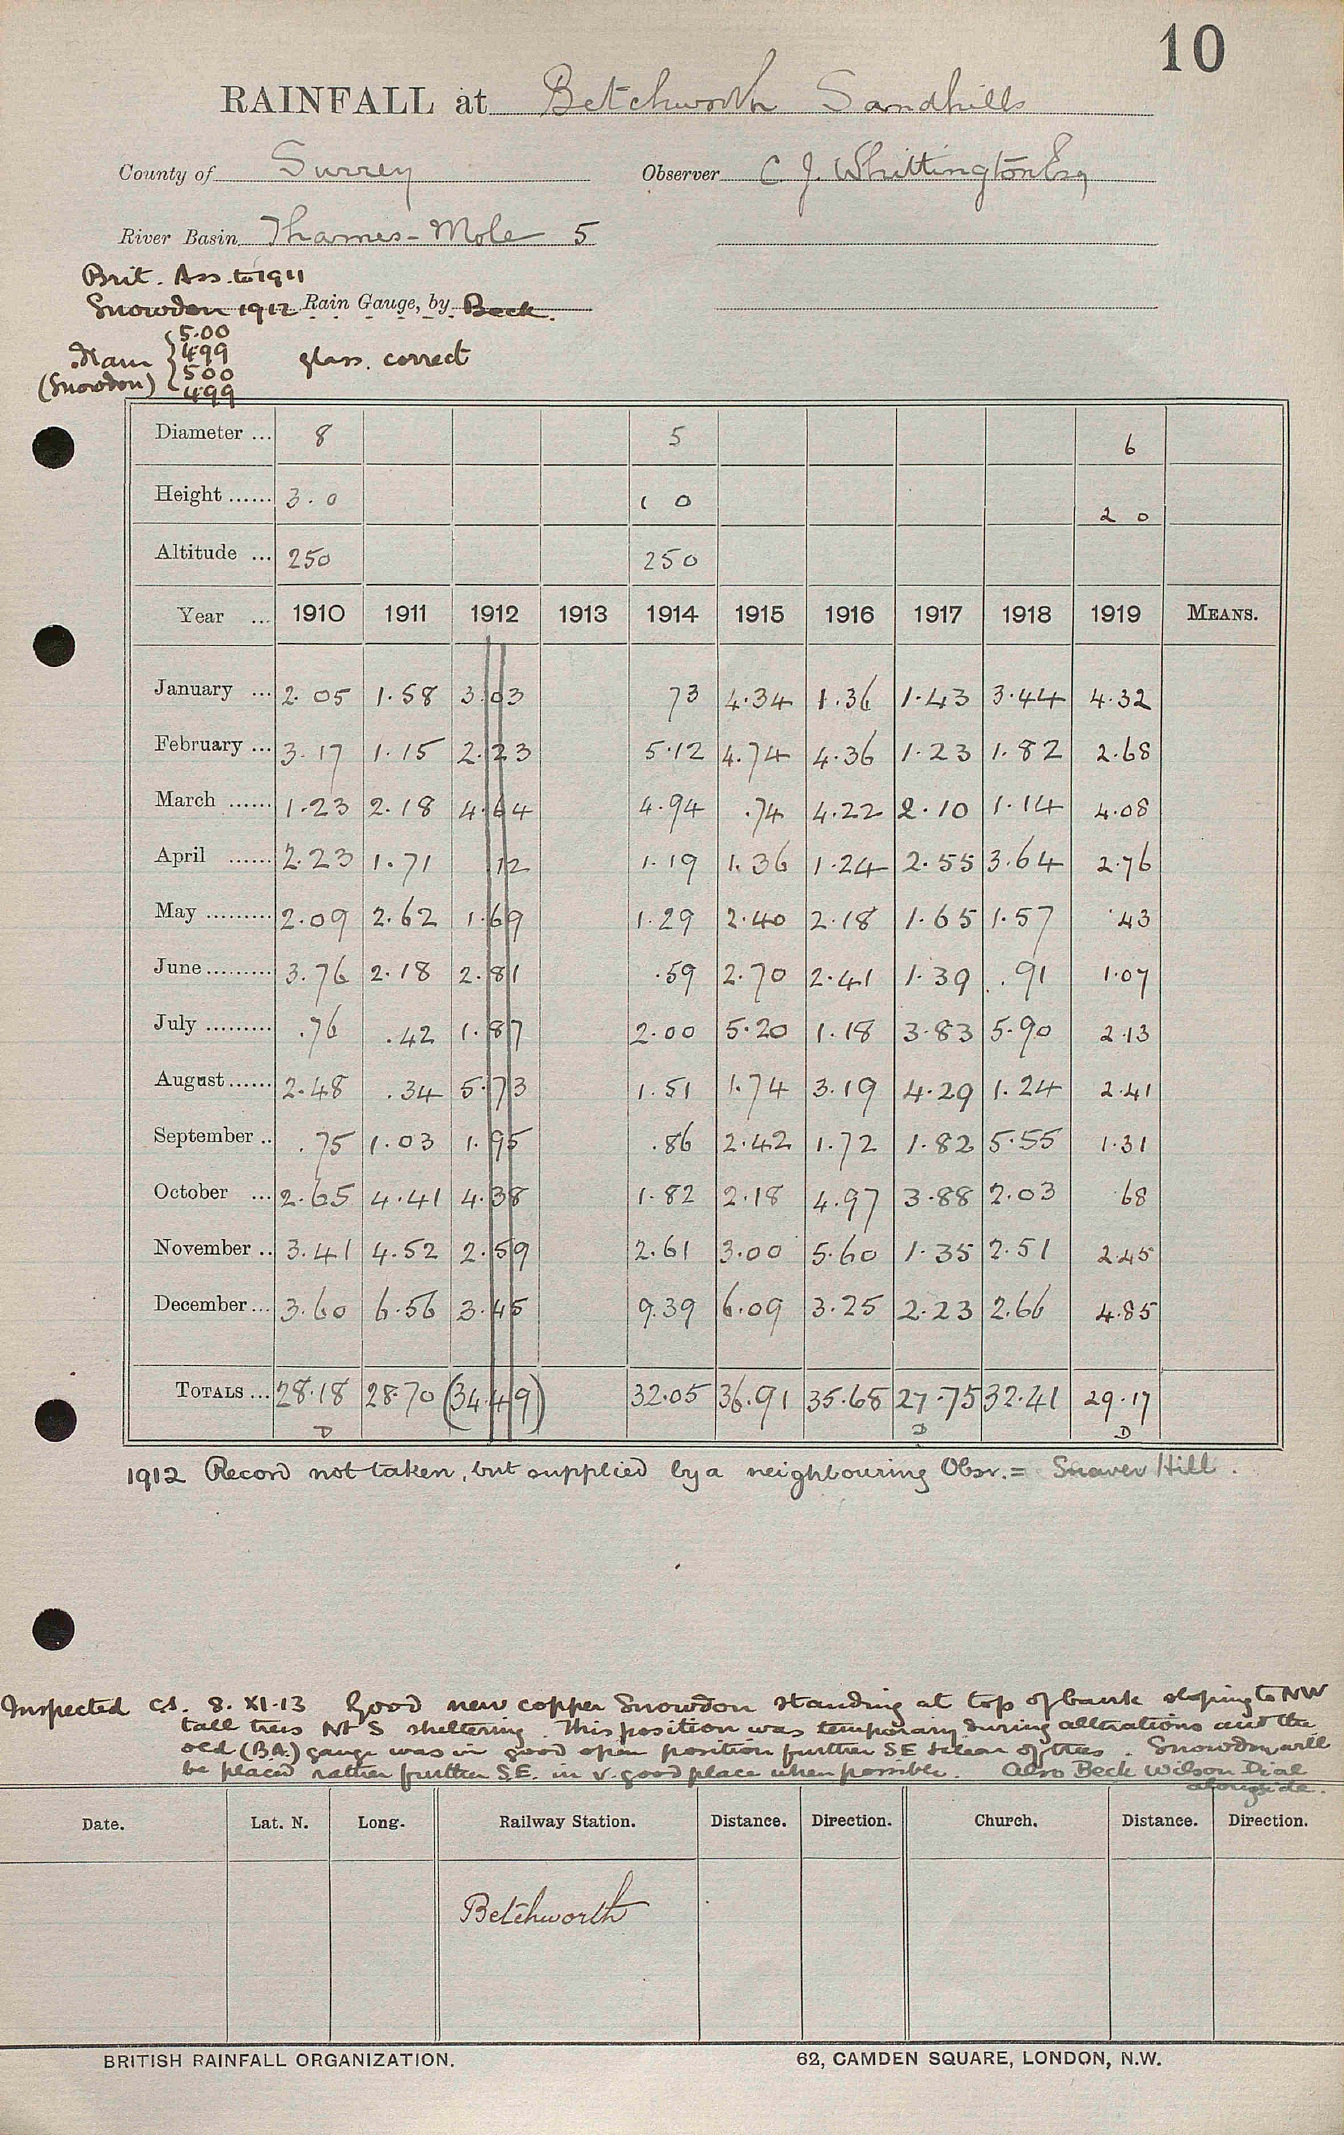 10
RAINFALL at Betchworth Sandhills
County of Surrey Observer C J. Whittington Esq
River Basin Thames - Mole 5
Brit. Ass. to 1911
Snowdon 1912 Rain Gauge, by Beck.
Diam { 5.00
499
(Snowdon) 500
499
glass. correct
Diameter ... 8 5 6
Height ...... 3.0 1 0 2 0
Altitude ... 250 250
Year ... 1910 1911 1912 1913 1914 1915 1916 1917 1918 1919 MEANS.
January ... 2.05 1.58 3.03 73 4.34 1.36 1.43 3.44 4.32
February ... 3.17 1.15 2.23 5.12 4.74 4.36 1.23 1.82 2.68
March ...... 1.23 2.18 4.64 4.94 .74 4.22 2.10 1.14 4.08
April ...... 2.23 1.71 .12 1.19 1.36 1.24 2.55 3.64 2.76
May ......... 2.09 2.62 1.69 1.29 2.40 2.18 1.65 1.57 .43
June ......... 3.76 2.18 2.81 .59 2.70 2.41 1.39 .91 1.07
July ......... .76 .42 1.87 2.00 5.20 1.18 3.83 5.90 2.13
August ...... 2.48 .34 5.73 1.51 1.74 3.19 4.29 1.24 2.41
September .. .75 1.03 1.95 .86 2.42 1.72 1.82 5.55 1.31
October ... 2.65 4.41 4.38 1.82 2.18 4.97 3.88 2.03 68
November .. 3.41 4.52 2.59 2.61 3.00 5.60 1.35 2.51 2.45
December ... 3.60 6.56 3.45 9.39 6.09 3.25 2.23 2.66 4.85
TOTALS ... 28.18 28.70 (34.49) 32.05 36.91 35.68 27.75 32.41 29.17
D D D
1912 Record not taken, but supplied by a neighbouring Obsr. = Hill.
Inspected C.S. 8. XI.13 Good new copper Snowdon standing at top of bank sloping to NW
tall trees N & S sheltering. This position was temporary during alterations and the
old (B.A.) gauge was in good open position further SE & clear of trees. Snowdon will
be placed rather further S.E. in v. good place when possible. Also Beck Wilson Dial
alongside.
Date. Lat. N. Long. Railway Station. Distance. Direction. Church. Distance. Direction.
Betchworth
BRITISH RAINFALL ORGANIZATION. 62, CAMDEN SQUARE, LONDON, N.W.